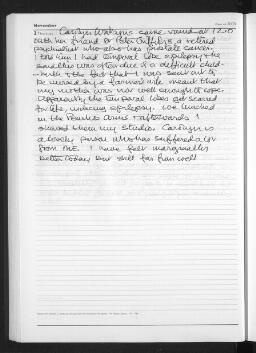 November
Carolyn Watkins came round at 12.0
with her friend Dr Peter Duffield a retired
psychiatrist who also has prostate cancer.
I told him I had temporal lobe epilepsy & he
said this was often due to a difficult child-
birth & the fact that I was sent out to
be nursed by a farmer's wife meant that
my mother was not well enough to cope.
Apparently the temporal lobes get scarred
for life, causing epilepsy. We lunched
in the Arms & afterwards I
showed them my studio. Carolyn is
a lovely person who has suffered a lot
from ME. I have felt marginally
better today but still far from well